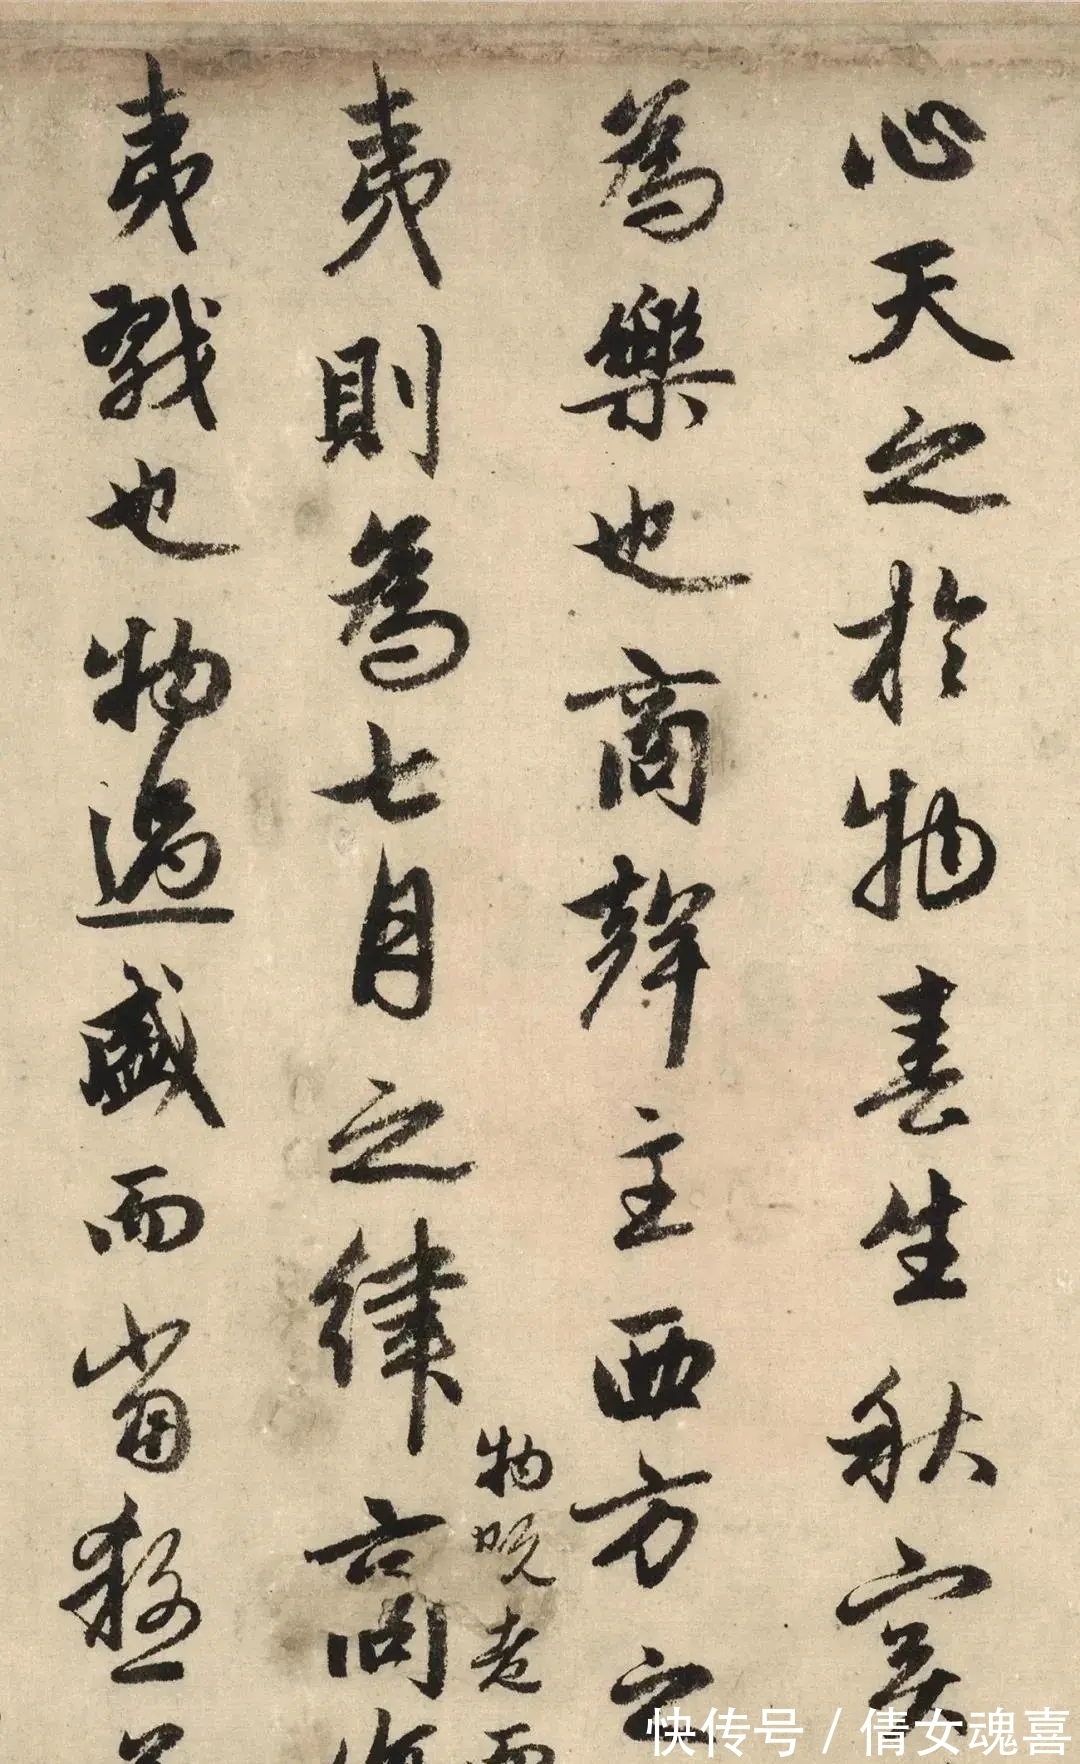 心天之於物春生秋實
為樂也商聲主西方之
物既老而
夷則為七月之律商傷
夷戮也物過盛而當殺
快传号/倩女魂喜